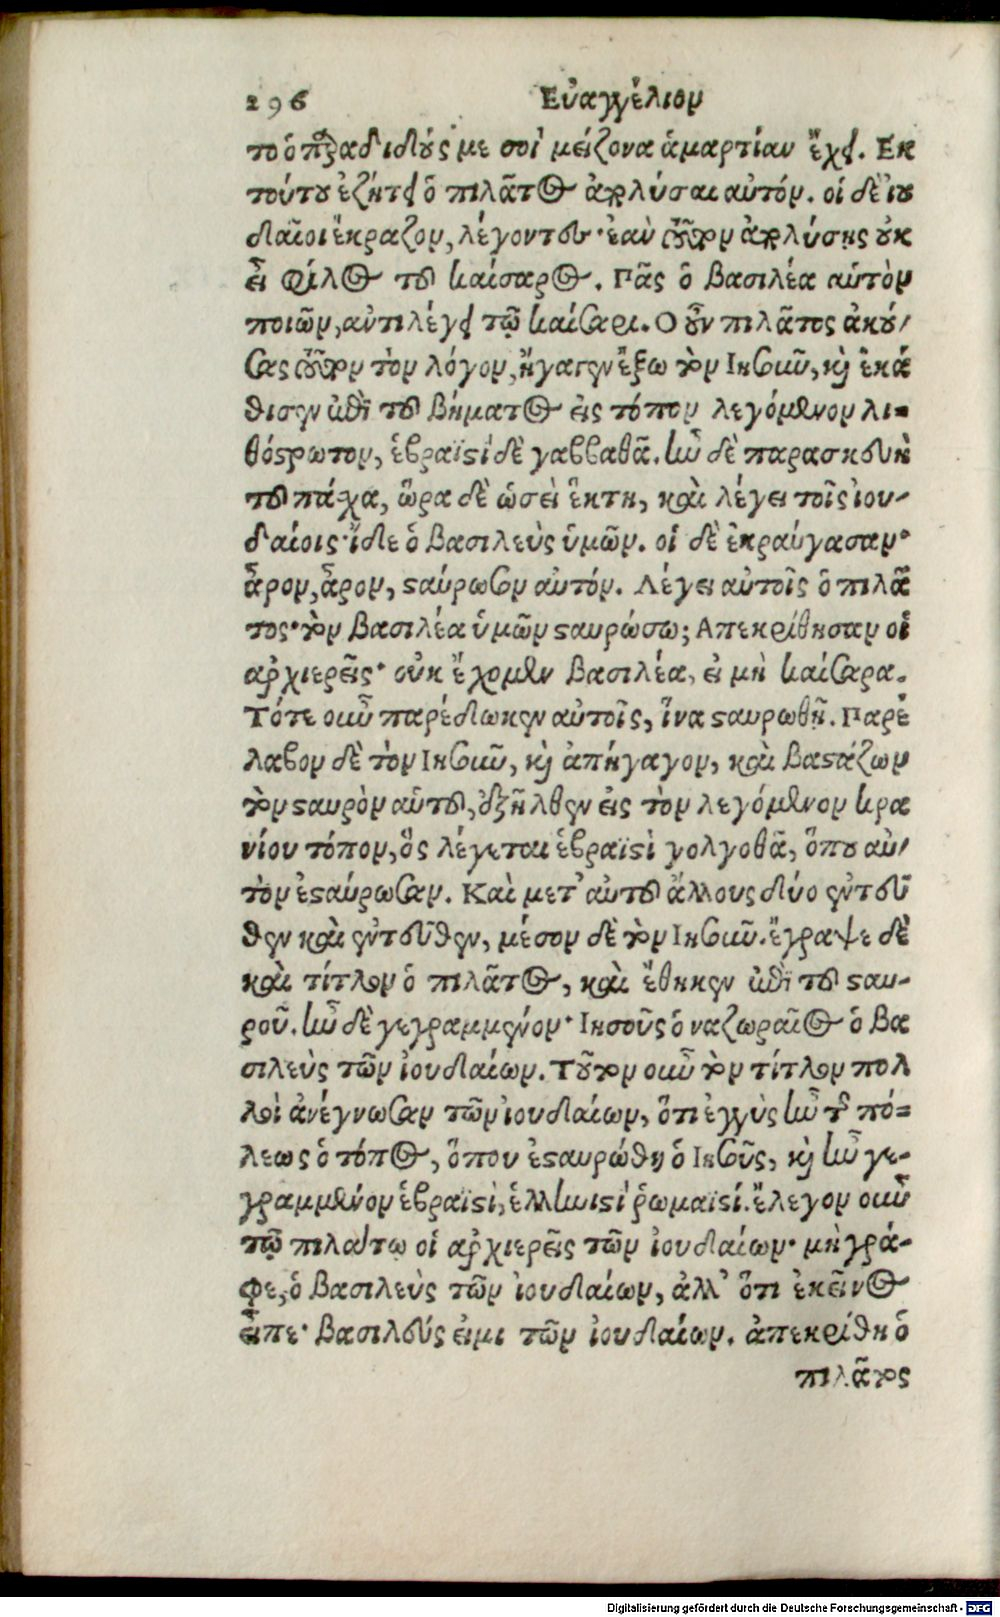 296 Εὐαγγέλιον
το ὁ παραδιδούς με σοὶ μείζονα ἁμαρτίαν ἔχει. Εκ
τούτου ἐζήτει ὁ πιλᾶτος ἀπολύσαι αὐτόν. οἱ δὲ ἰου
δαῖοι ἔκραζον, λέγοντες· ἐαὺ τοῦτον ἀπολύσῃς οὐκ
εἶ φίλος τοῦ καίσαρος. Πᾶς ὁ βασιλέα αὑτὸν
ποιῶν, αντιλέγει τῷ καίσαρι. Ο οὖν πιλᾶτος ἀκού/
σας τοῦτον τὸν λόγον, ἤγαγεν ἔξω τὸν Ιησοῦν, καὶ ἐκά
θισεν ἐπὶ τοῦ βήματος εἰς τόπον λεγόμενον λι-
θόστρωτον, ἑβραϊστὶ δὲ γαββαθᾶ. ἦν δὲ παρασκευὴ
τοῦ πάσχα, ὥρα δὲ ὡσεὶ ἕκτη, καὶ λέγει τοῖς ἰου-
δαίοις· ἴδε ὁ βασιλεὺς ὑμῶν. οἱ δὲ ἐκραύγασαν·
ἆρον, ἆρον, σταύρωσον αὐτόν. Λέγει αὐτοῖς ὁ πιλᾶ
τος· τὸν βασιλέα ὑμῶν σταυρώσω; Απεκρίθησαν οἱ
αρχιερεῖς· οὐκ ἔχομεν βασιλέα, εἰ μὴ καίσαρα.
Τότε οὖν παρέδωκεν αὐτοῖς, ἵνα σταυρωθῇ. Παρέ
λαβον δὲ τὸν Ιησοῦν, καὶ ἀπήγαγον, καὶ βαστάζων
τὸν σταυρὸν αὑτοῦ, ἐξῆλθεν εἰς τὸν λεγόμενον κρα
νίου τόπον, ὃς λέγεται ἑβραϊστὶ γολγοθᾶ, ὅπου αὐ/
τὸν ἐσταύρωσαν. Καὶ μετ' αὐτοῦ ἄλλους δύο ἐντεῦ
θεν καὶ ἐντεῦθεν, μέσον δὲ τὸν Ιησοῦν. ἔγραψε δὲ
καὶ τίτλον ὁ πιλᾶτος, καὶ ἔθηκεν ἐπὶ τοῦ σταυ-
ροῦ. ἦν δὲ γεγραμμένον· Ιησοῦς ὁ ναζωραῖος ὁ βα
σιλεὺς τῶν ἰουδαίων. Τοῦτον οὖν τὸν τίτλον πολ
λοὶ ἀνέγνωσαν τῶν ἰουδαίων, ὅτι ἐγγὺς ἦν τῆς πό-
λεως ὁ τόπος, ὅπου ἐσταυρώθη ὁ Ιησοῦς, καὶ ἦν γε-
γραμμένον ἑβραϊστὶ, ἑλληνιστὶ ῥωμαϊστί. ἔλεγον οὖν
τῷ πιλάτῳ οἱ αρχιερεῖς τῶν ἰουδαίων· μὴ γρά-
φε, ὁ βασιλεὺς τῶν ἰουδαίων, ἀλλ' ὅτι ἐκεῖνος
εἶπε· βασιλεύς εἰμι τῶν ἰουδαίων. ἀπεκρίθη ὁ
πιλᾶτος
Digitalisierung gefördert durch die Deutsche Forschungsgemeinschaft - DFG